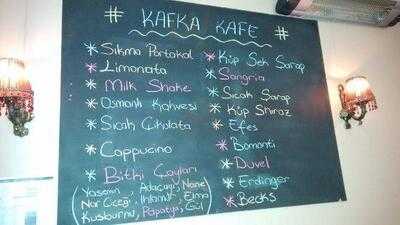 # KAFKA KAFE #
* Sıkma Portakal
* Limonata
* Milk Shake
* Osmanlı Kahvesi
* Sıcak Çikolata
* Cappucino
* Bitki Çayları
(Yasemin, Adaçayı, Nane
Nar Çiçeği, Ihlamur, Elma
Kuşburnu, Papatya, Gül)
* Küp Sek Şarap
* Sangria
* Sıcak Şarap
* Küp Shiraz
* Efes
* Bomonti
* Duvel
* Erdinger
* Becks